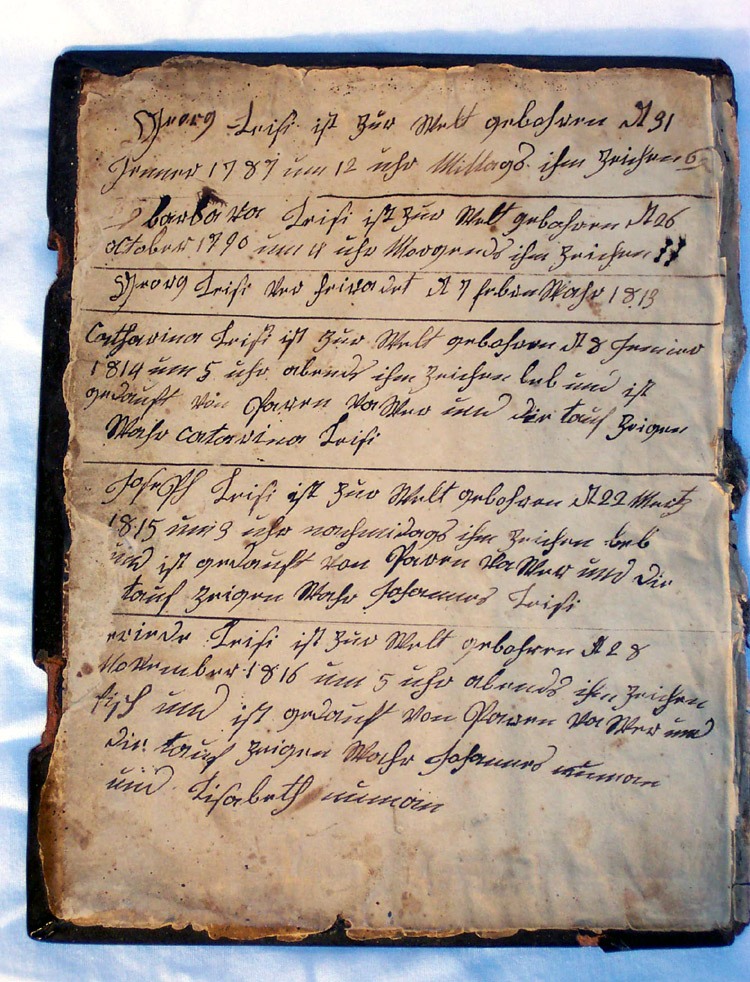 Georg Leisi ist zur Welt gebohren d 31
Jenner 1787 um 12 uhr Mittags ihm Zeichen
barbara Leisi ist zur Welt gebohren d 26
october 1790 um 4 uhr Morgends ihm Zeichen
Georg Leisi ver heiradet d 7 febru Wahr 1813
Catharina Leisi ist zur Welt gebohren d 8 Jenner
1814 um 5 uhr abends ihm Zeichen leb und ist
gedauft von Paren und die tauf Zeigen
Wahr Catarina Leisi
Joseph Leisi ist zur Welt gebohren d 22 Mertz
1815 um 3 uhr nachmidags ihm Zeichen leb
und ist gedauft von Paren und die
tauf Zeigen Wahr Johannes Leisi
Leisi ist zur Welt gebohren d 28
November 1816 um 5 uhr abends ihm Zeichen
fisch und ist gedauft von Paren und
die tauf Zeigen Wahr Johannes numan
und Lisabeth numan